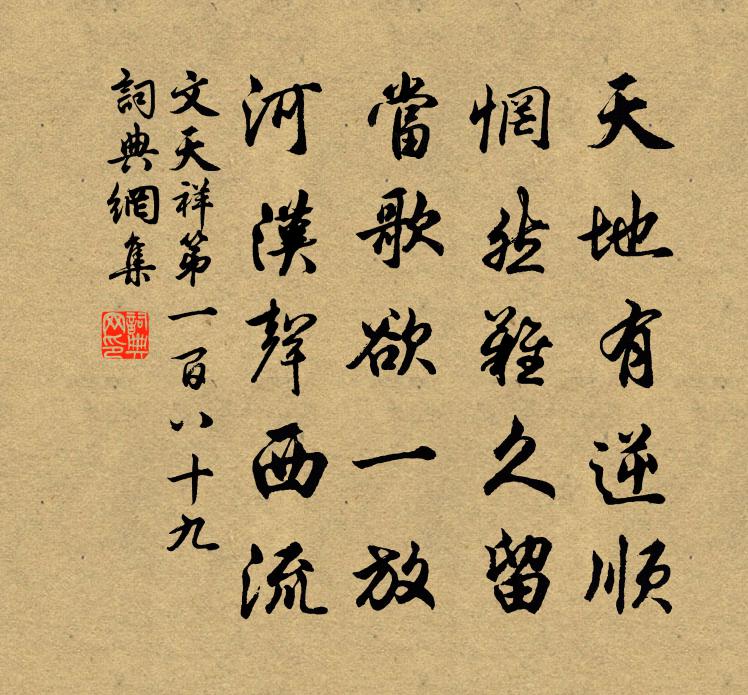 天地有逆順
惘然難久留
當歌欲一放
河漢聲西流
文天祥第一百八十九
詞典網集
詞典網印